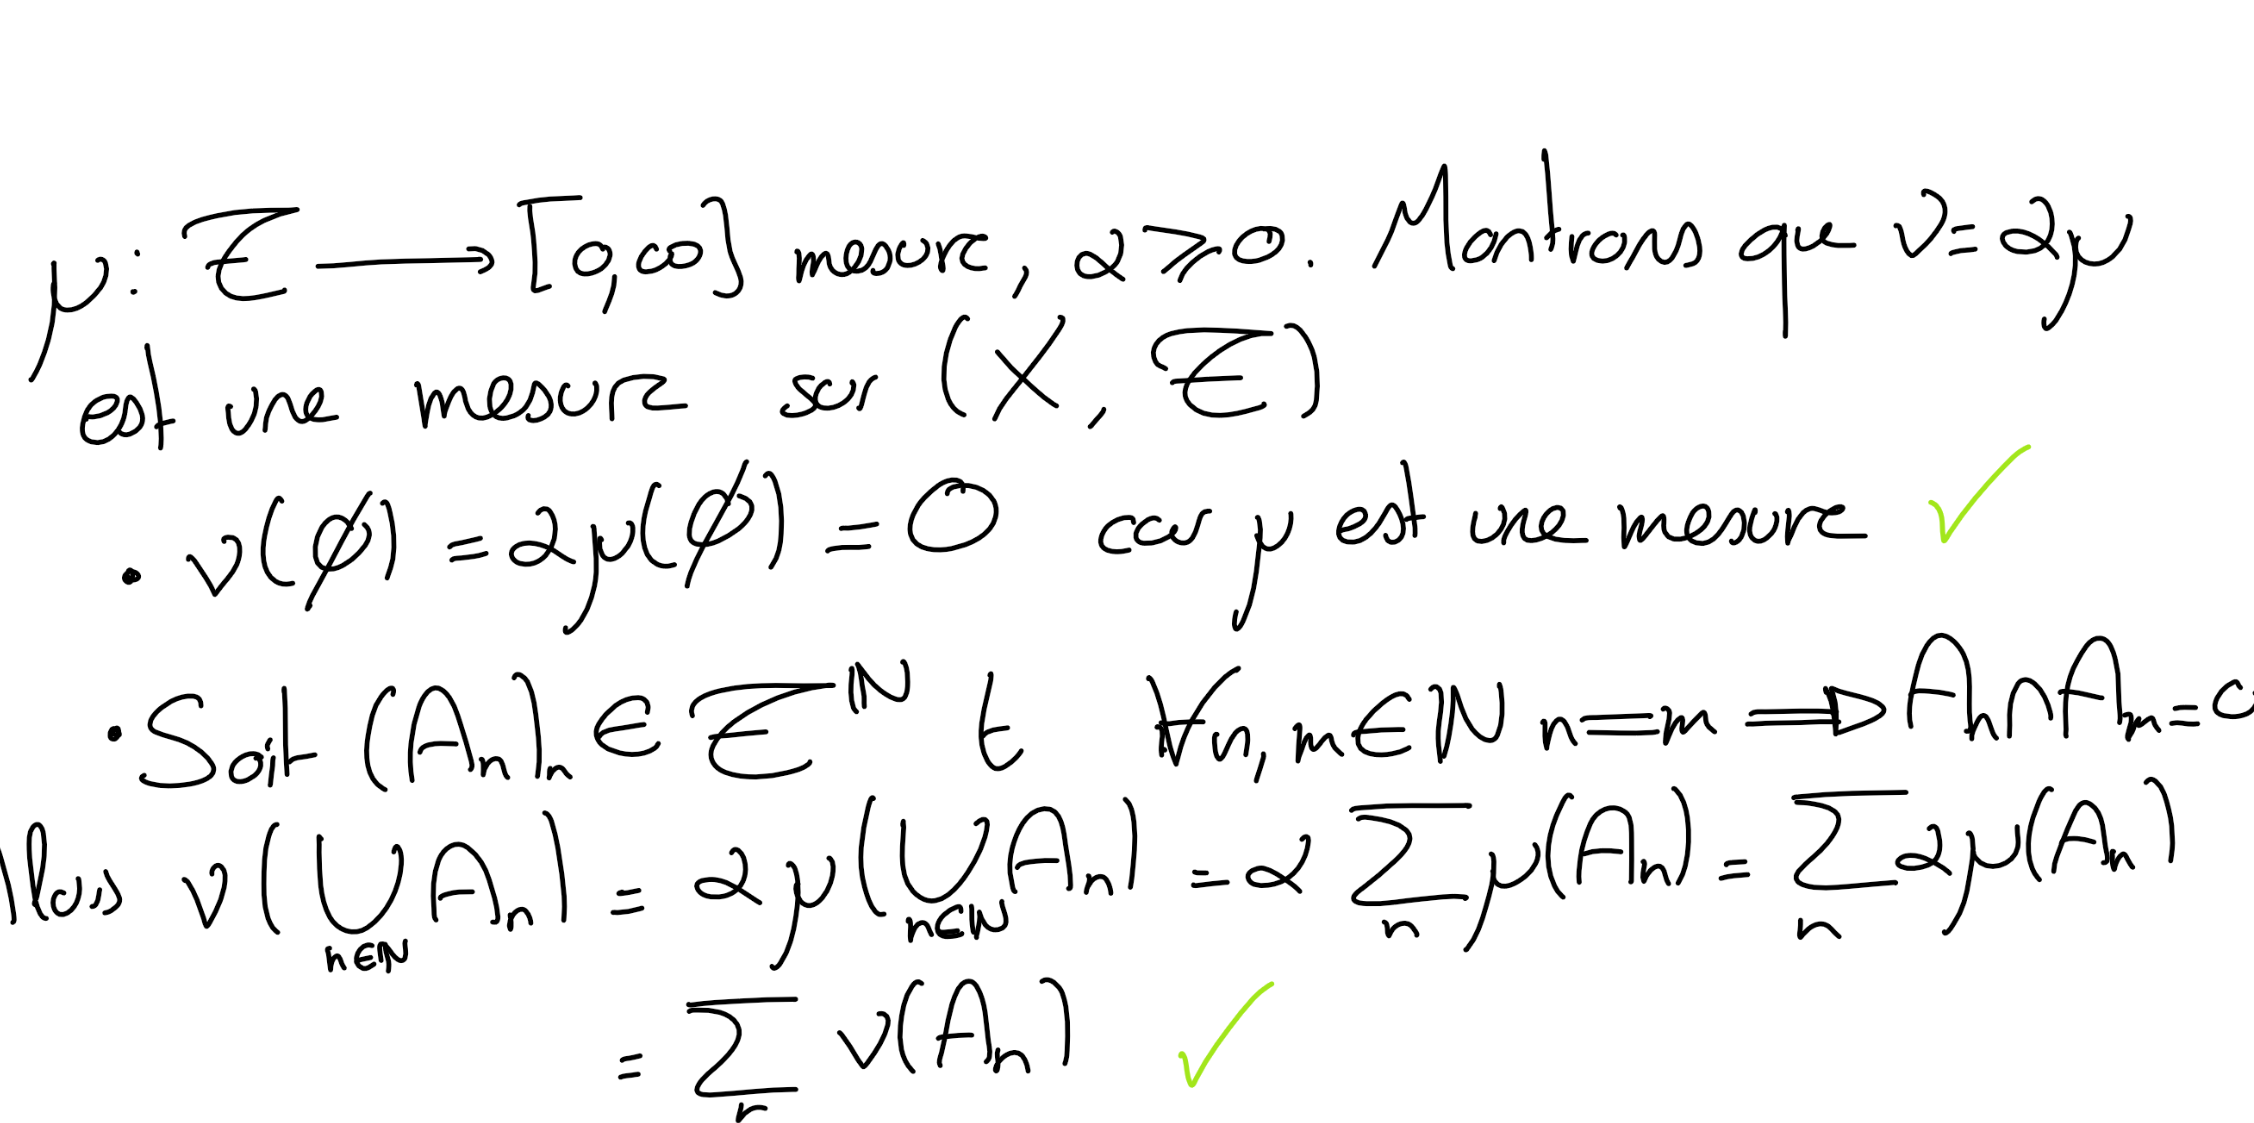 μ: Ƹ ⟶ [0,∞] mesure, α ⩾ 0. Montrons que ν = αμ
est une mesure sur (X, Ƹ)
• ν(∅) = αμ(∅) = 0 car μ est une mesure ✓
• Soit (Aₙ)ₙ ∈ Ƹ^ℕ t ∀n, m ∈ ℕ n = m ⟹ Aₙ ∩ Aₘ =
Alors ν(⋃_{n∈ℕ} Aₙ) = αμ(⋃_{n∈ℕ} Aₙ) = α ∑_n μ(Aₙ) = ∑_n αμ(Aₙ)
= ∑_n ν(Aₙ) ✓